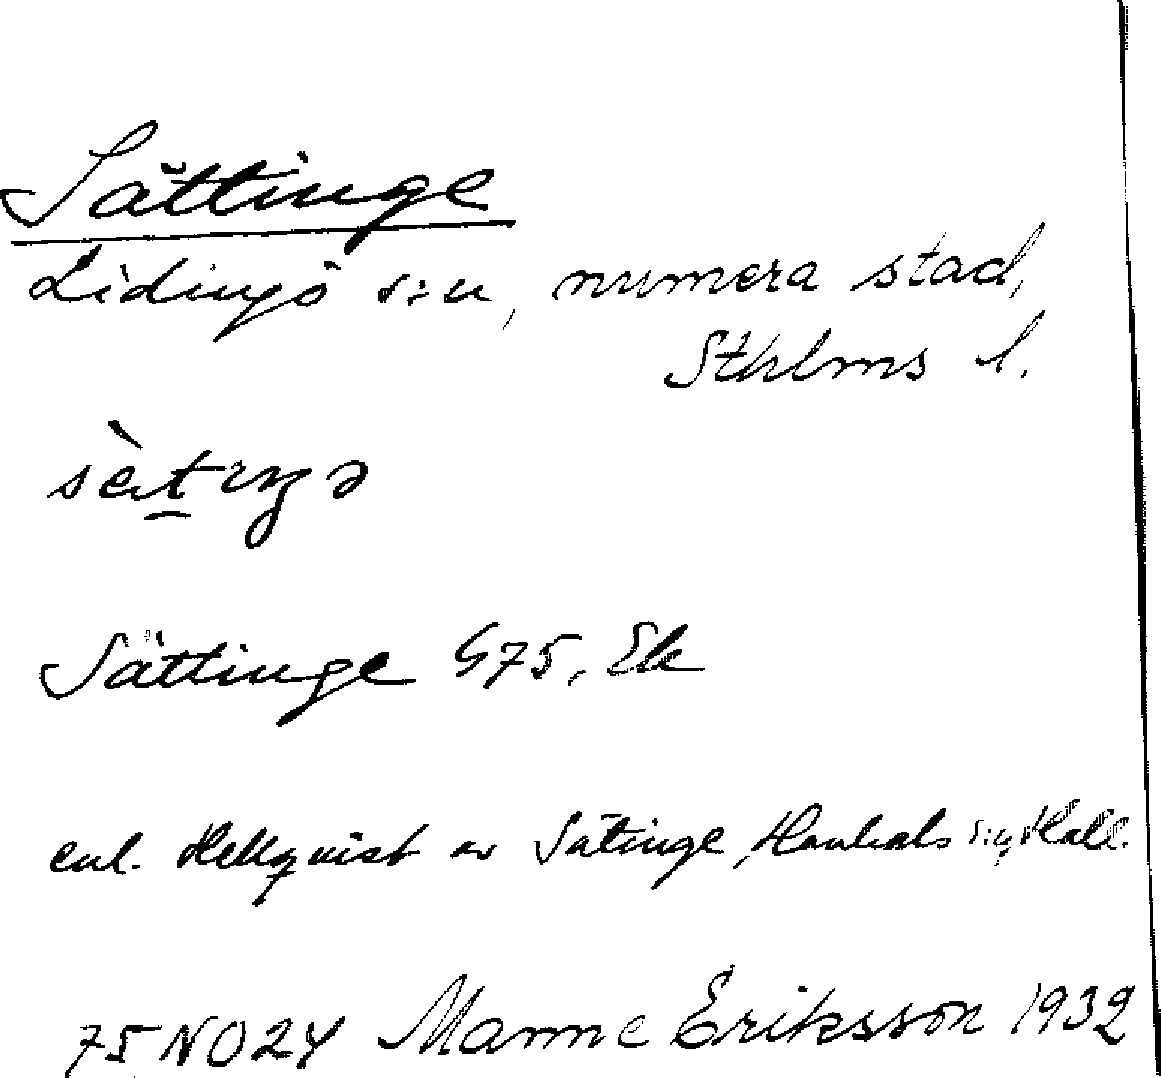 Sättinge
Lidingö s:n, numera stad,
Sthlms l.
Sättinge G75, Ek
enl. Hellquist av Sätinge, Hanhals s:n, Hall.
75 NO 2Y Manne Eriksson 1932